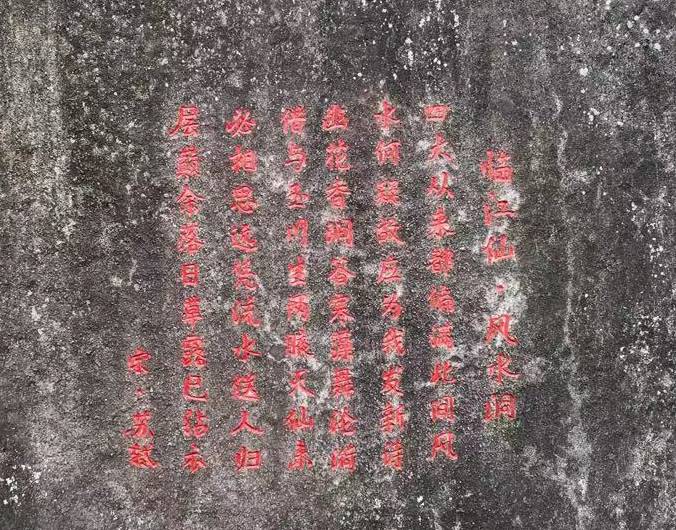 临江仙·风水洞
四大从来都遍满此间风
水何疑故应为我发新诗
幽花香涧谷寒藻舞沦漪
借与玉川生两腋天仙未
必相思还凭流水送人归
层巅余落日草露已沾衣
宋·苏轼